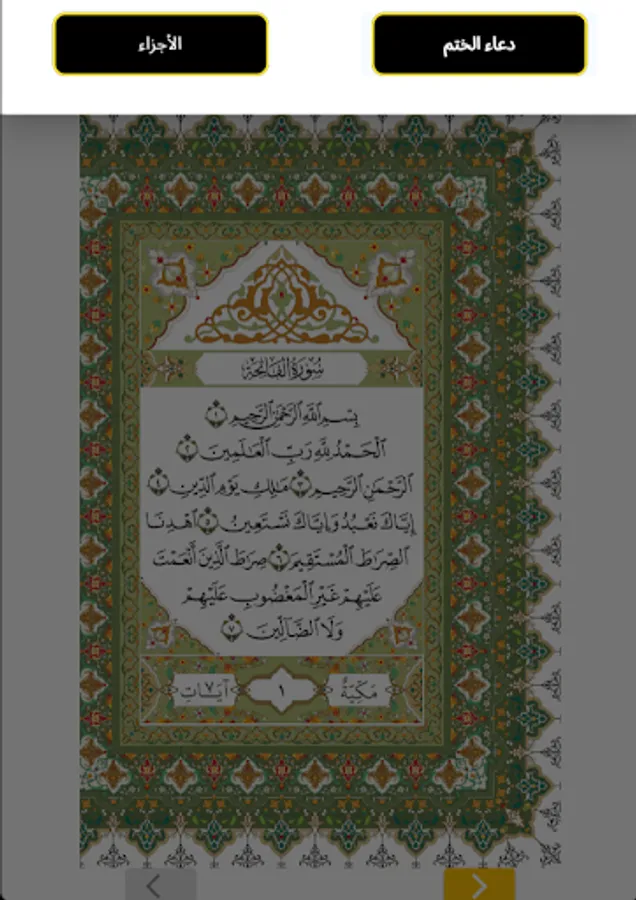 دعاء الختم
الأجزاء
سُورَةُ الفَاتِحَةِ
بِسْمِ ٱللَّهِ ٱلرَّحْمَٰنِ ٱلرَّحِيمِ ١
ٱلْحَمْدُ لِلَّهِ رَبِّ ٱلْعَٰلَمِينَ ٢
ٱلرَّحْمَٰنِ ٱلرَّحِيمِ ٣ مَٰلِكِ يَوْمِ ٱلدِّينِ ٤
إِيَّاكَ نَعْبُدُ وَإِيَّاكَ نَسْتَعِينُ ٥ ٱهْدِنَا
ٱلصِّرَٰطَ ٱلْمُسْتَقِيمَ ٦ صِرَٰطَ ٱلَّذِينَ أَنْعَمْتَ
عَلَيْهِمْ غَيْرِ ٱلْمَغْضُوبِ عَلَيْهِمْ
وَلَا ٱلضَّآلِّينَ ٧
مَكِّيَّةٌ ١ آيَاتُهَا ٧